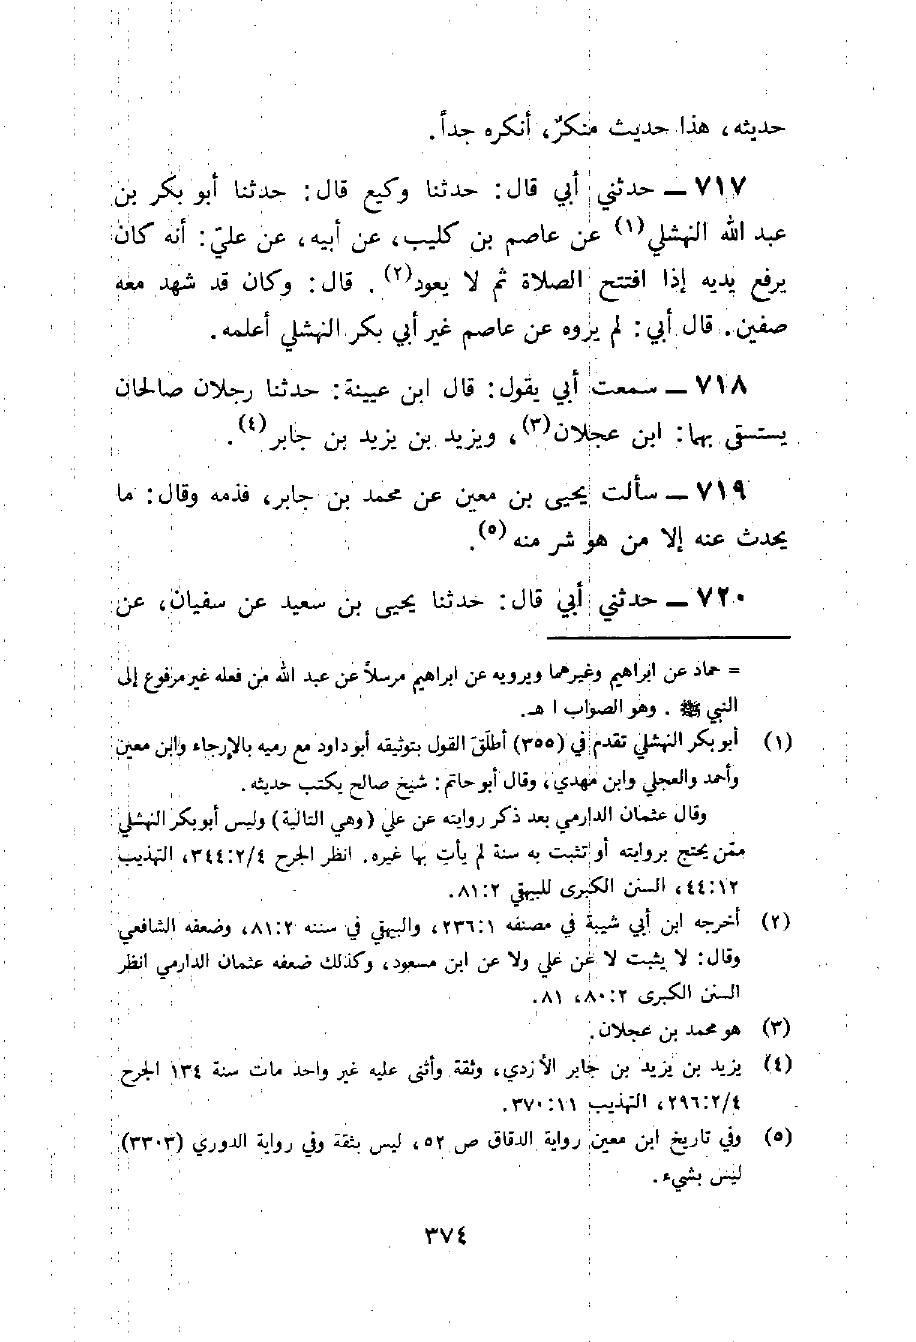 حديثه، هذا حديث منكرٌ، أنكره جداً.
٧١٧ ــ حدثني أبي قال: حدثنا وكيع قال: حدثنا أبو بكر بن
عبد الله النهشلي (١) عن عاصم بن كليب، عن أبيه، عن عليّ: أنه كان
يرفع يديه إذا افتتح الصلاة ثم لا يعود (٢). قال: وكان قد شهد معه
صفين. قال أبي: لم يروه عن عاصم غير أبي بكر النهشلي أعلمه.
٧١٨ ــ سمعت أبي يقول: قال ابن عيينة: حدثنا رجلان صالحان
يستسقى بهما: ابن عجلان (٣)، ويزيد بن يزيد بن جابر (٤).
٧١٩ ــ سألت يحيى بن معين عن محمد بن جابر، فذمه وقال: ما
يحدث عنه إلا من هو شر منه (٥).
٧٢٠ ــ حدثني أبي قال: حدثنا يحيى بن سعيد عن سفيان، عن
= حماد عن ابراهيم وغيرهما ويرويه عن ابراهيم مرسلاً عن عبد الله من فعله غير مرفوع إلى
النبي ﷺ. وهو الصواب ا هـ.
(١) أبو بكر النهشلي تقدم في (٣٥٥) أطلَقَ القول بتوثيقه أبو داود مع رميه بالإرجاء وابن معين
وأحمد والعجلي وابن مهدي، وقال أبو حاتم: شيخ صالح يكتب حديثه.
وقال عثمان الدارمي بعد ذكر روايته عن علي (وهي التالية) وليس أبو بكر النهشلي
ممّن يحتج بروايته أو تثبت به سنة لم يأت بها غيره. انظر الجرح ٣٤٤:٢/٤، التهذيب
٤٤:١٢، السنن الكبرى للبيهقي ٨١:٢.
(٢) أخرجه ابن أبي شيبة في مصنفه ٢٣٦:١، والبيهقي في سننه ٨١:٢، وضعفه الشافعي
وقال: لا يثبت لا عن علي ولا عن ابن مسعود، وكذلك ضعفه عثمان الدارمي انظر
السنن الكبرى ٨٠:٢، ٨١.
(٣) هو محمد بن عجلان.
(٤) يزيد بن يزيد بن جابر الأزدي، وثقة وأثنى عليه غير واحد مات سنة ١٣٤ الجرح
٢٩٦:٢/٤، التهذيب ٣٧٠:١١.
(٥) وفي تاريخ ابن معين رواية الدقاق ص ٥٢، ليس بثقة وفي رواية الدوري (٣٣٠٣)
ليس بشيء.
٣٧٤